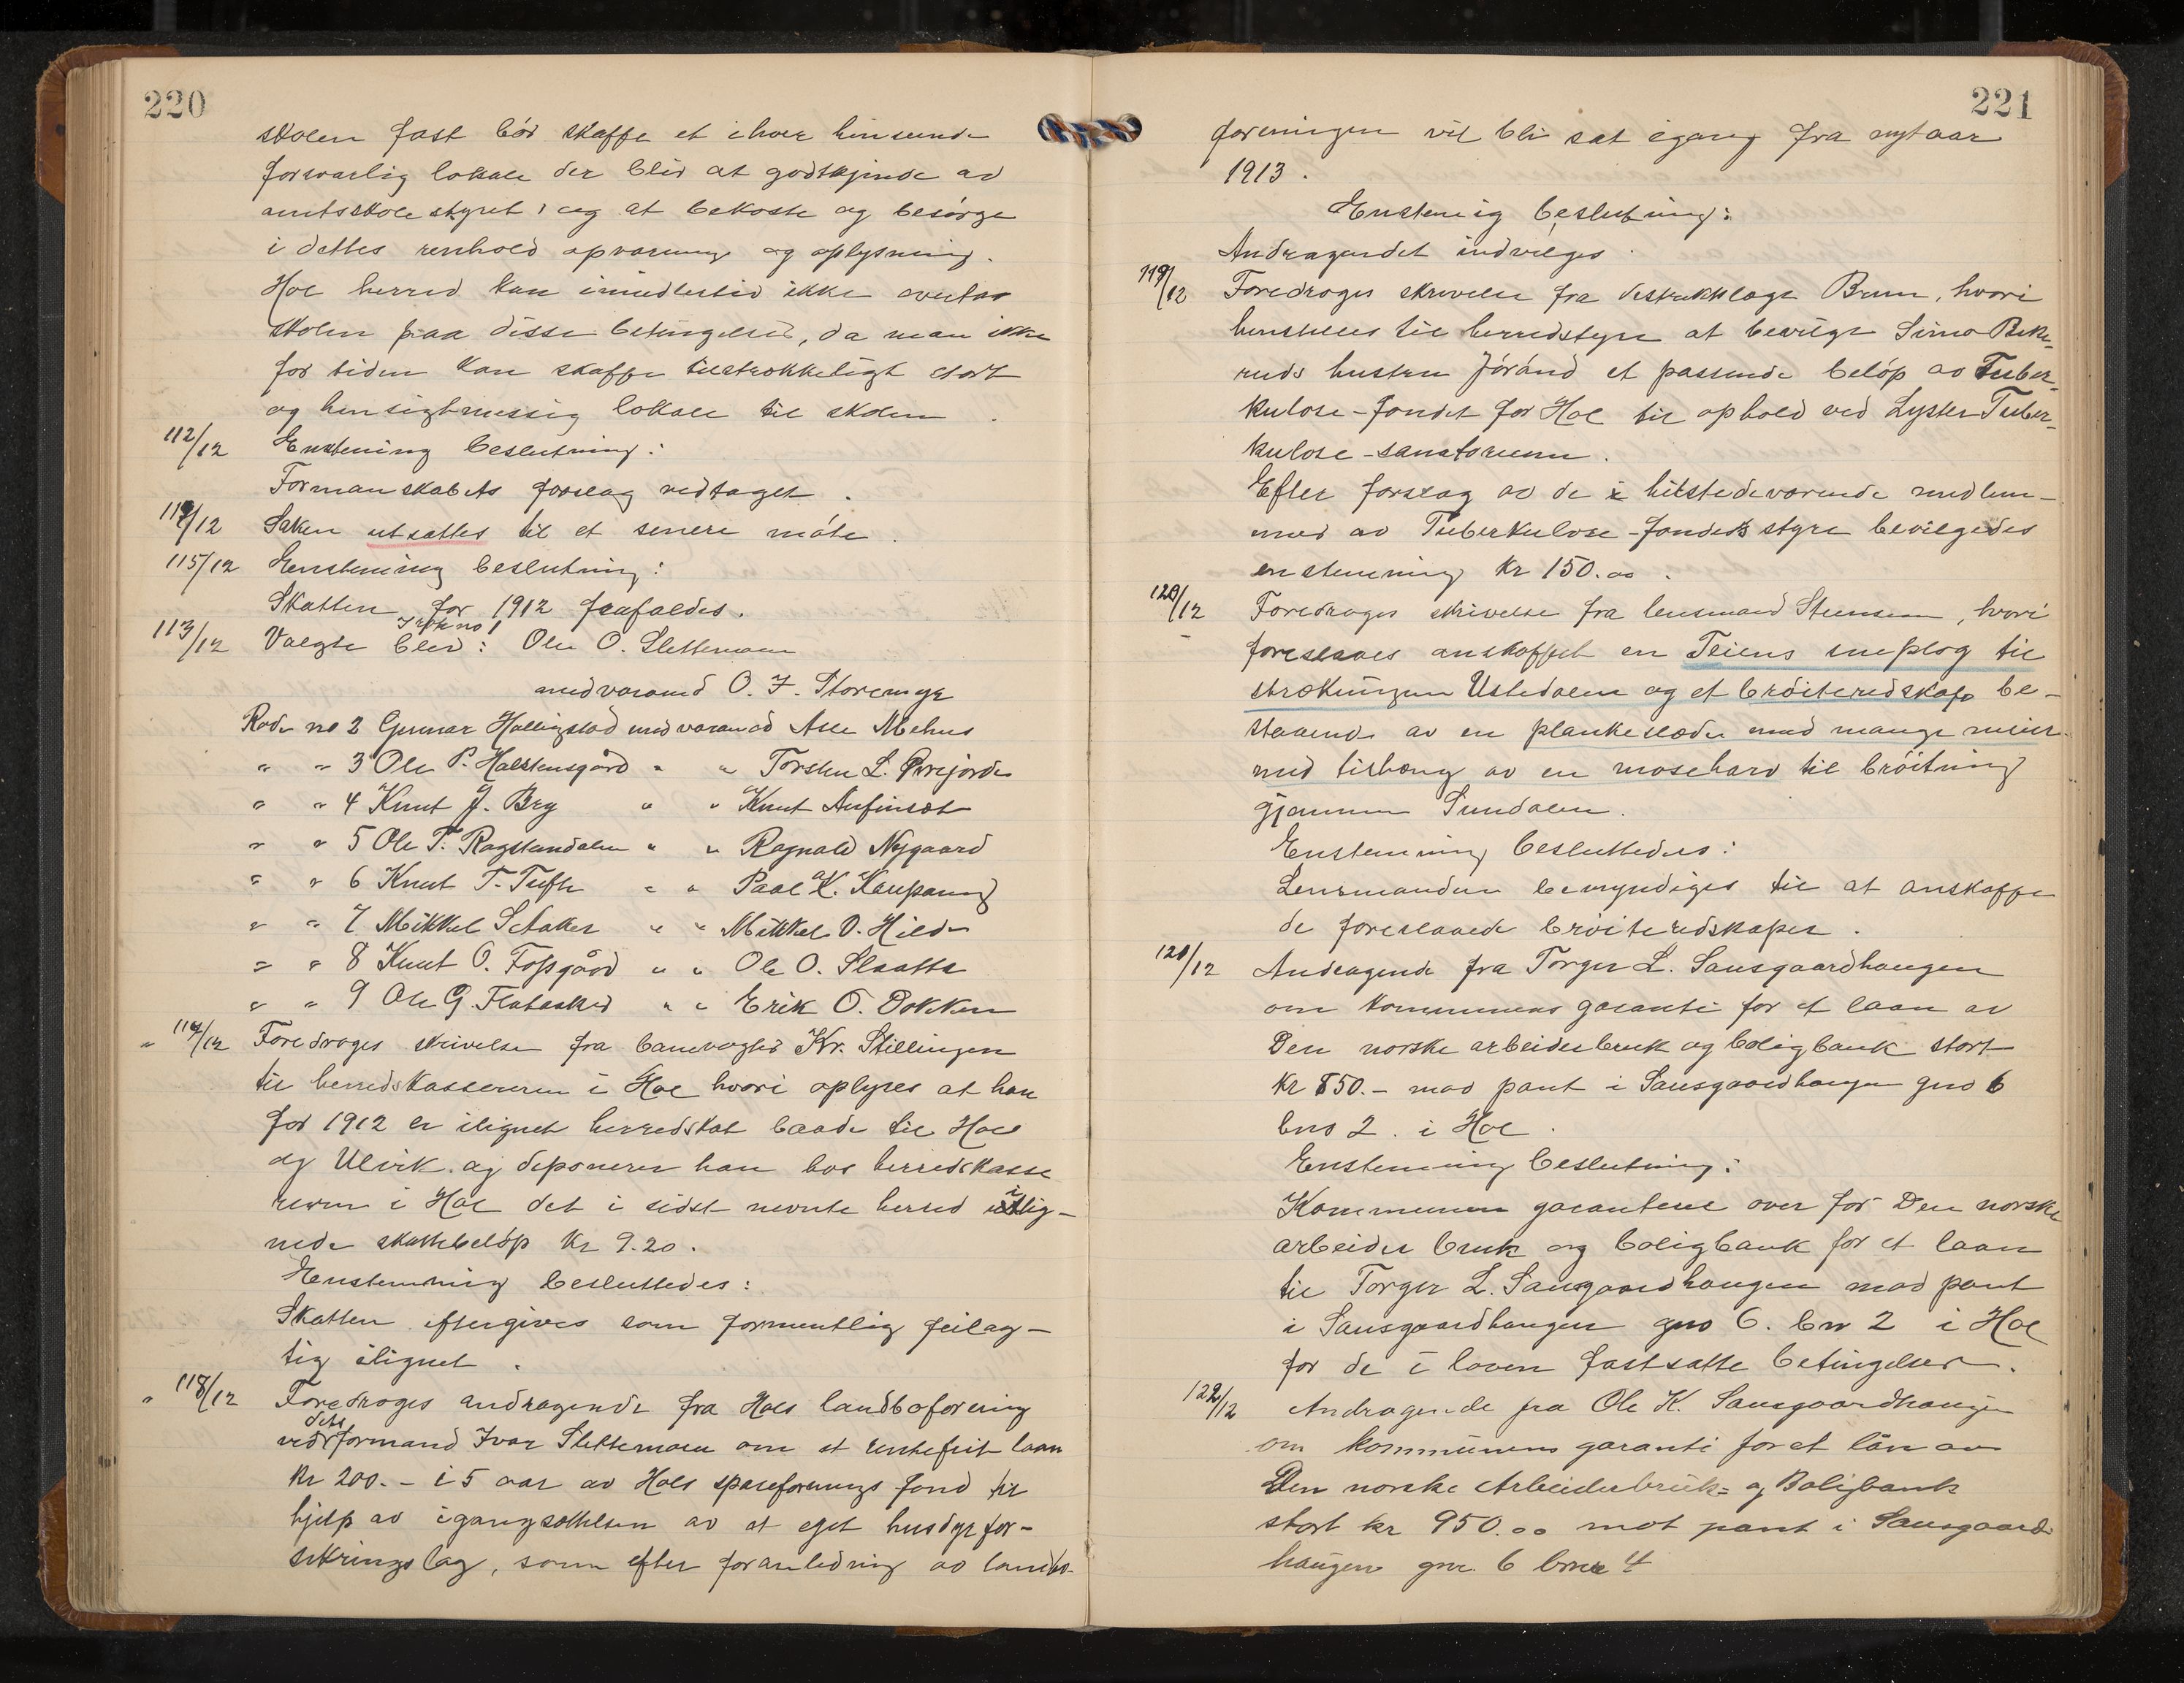 220
skolen fast bør skaffe et i hver henseende
forsvarlig lokale der blir at godkjende av
amtsskolestyret, og at bekoste og besørge
i dettes renhold opvarmning og oplysning.
Hol herred kan imidlertid ikke overta
skolen paa disse betingelser, da man ikke
for tiden kan skaffe tilstrækkeligt stort
og hensigtmessig lokale til skolen.
112/12 Enstemmig beslutning:
Formanskabets forslag vedtaget.
Saken utsattes til et senere møte.
115/12 Enstemmig beslutning:
Skatten for 1912 frafaldes.
113/12 Valgte blev: Ole O. Slettemoen
med varamd O. J. Storemyr
Rode no 2 Gunnar Hallingstad med varamd Asle Mehus
" " 3 Ole P. Halstensgård " " Torsten L.
" " 4 Knut J. Bry " " Knut Aufinset
" " 5 Ole T. Ragstendalen " " Ragnald Nygaard
" " 6 Knut T. Tufte " " Paal K. Kaupang
" " 7 Mikkel " " Mikkel O. Hilde
" " 8 Knut O. Fossgård " " Ole O. Slaatta
" " 9 Ole G. " " Erik O. Bakken
" 117/12 Foredroges skrivelse fra banevogter Kr. Stillingen
til herredskassereren i Hol hvori oplyses at han
for 1912 er ilignet herredskat baade til Hol
og Ulvik og deponerer han hos herredskasse
reren i Hol det i sidst nevnte herred ilig-
nede skattebeløp kr 9.20.
Enstemmig besluttedes:
Skatten eftergives som formentlig feilag-
tig ilignet.
" 118/12 Foredroges andragende fra Hols landboforening
ved dets formand Ivar Slettemoen om et rentefrit laan
kr 200.- i 5 aar av Hols spareforenings fond til
hjelp av igangsættelsen av et eget husdyrfor-
sikringslag, som efter foranledning av landbo-
221
foreningen vil bli sat igang fra nytaar
1913.
Enstemig beslutning:
Andragendet indvilges.
119/12 Foredroges skrivelse fra distriktslæge Brun, hvori
henstilles til herredstyre at bevilge Simo Bække-
ruds hustru Jøránd et passende beløp av Tuber-
kulose-fondet for Hol til ophold ved Lyster Tuber-
kulose-sanatorium.
Efter forslag av de tilstedeværende medlem-
mer av Tuberkulose-fondets styre bevilgedes
enstemmig kr 150.00.
120/12 Foredroges skrivelse fra lensmand Steensen, hvori
foreslaaes anskaffet en Teiens sneplog til
strækningen Ustedalen og et brøiteredskap be-
staaende av en plankeslæde med mange meier
med tilhæng av en moseharv til brøitning
gjennem Sundalen.
Enstemmig besluttedes:
Lensmanden bemyndiges til at anskaffe
de foreslaaede brøiteredskaper.
121/12 Andragende fra Torger L. Sausgaardhaugen
om kommunens garanti for et laan av
Den norske arbeiderbruk og boligbank stort
kr 850.- mod pant i Sausgaardhaugen gno 6
bno 2. i Hol.
Enstemmig beslutning:
Kommunen garanterer over for Den norske
arbeider bruk og boligbank for et laan
til Torger L. Sausgaardhaugen mod pant
i Sausgaardhaugen gno 6. bn 2 i Hol
for de i loven fastsatte betingelser.
122/12 Andragende fra Ole K. Sausgaardhaugen
om kommunens garanti for et lån av
Den norske Arbeiderbruk= og Boligbank
stort kr 950.00 mot pant i Sausgaard-
haugen gnr. 6 bnr 4